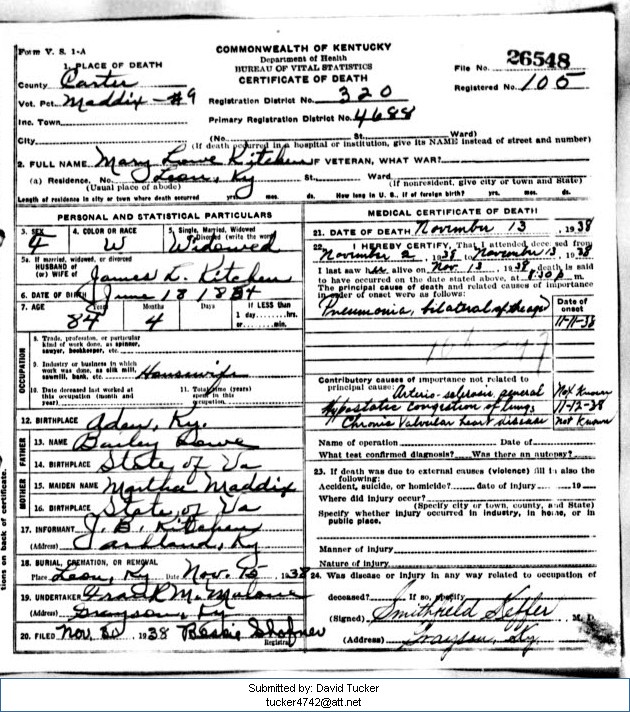 Form V. S. 1-A
COMMONWEALTH OF KENTUCKY
Department of Health
BUREAU OF VITAL STATISTICS
CERTIFICATE OF DEATH
File No. 26548
Registered No. 105
1. PLACE OF DEATH
County Carter
Vot. Pct. Maddix - #9
Inc. Town
City
Registration District No. 320
Primary Registration District No. 4688
(No. St. Ward)
(If death occurred in a hospital or institution, give its NAME instead of street and number)
2. FULL NAME Mary Lowe Kitchen IF VETERAN, WHAT WAR?
(a) Residence, No. Leon, Ky St., Ward
(Usual place of abode) (If nonresident, give city or town and State)
Length of residence in city or town where death occurred yrs. mos. ds. How long in U. S., if of foreign birth? yrs. mos. ds.
PERSONAL AND STATISTICAL PARTICULARS
3. SEX 4. COLOR OR RACE W 5. Single, Married, Widowed or Divorced (write the word) Widowed
5a. If married, widowed, or divorced
HUSBAND of
(or) WIFE of James L. Kitchen
6. DATE OF BIRTH June 18 1854
7. AGE 84 Years 4 Months Days If LESS than
1 day hrs.
or min.
OCCUPATION
8. Trade, profession, or particular
kind of work done, as spinner,
sawyer, bookkeeper, etc.
9. Industry or business in which
work was done, as silk mill,
sawmill, bank, etc. Housewife
10. Date deceased last worked at
this occupation (month and
year)
11. Total time (years)
spent in this
occupation
12. BIRTHPLACE Aden, Ky.
FATHER
13. NAME Bailey Lowe
14. BIRTHPLACE State of Va
MOTHER
15. MAIDEN NAME Martha Maddix
16. BIRTHPLACE State of Va
17. INFORMANT J. B. Kitchen
(Address) Ashland, Ky
18. BURIAL, CREMATION, OR REMOVAL
Place Leon, Ky Date Nov. 15, 1938
19. UNDERTAKER Frank M. Malone
(Address) Grayson, Ky
20. FILED Nov 30, 1938 Bessie Shofner
Registrar
MEDICAL CERTIFICATE OF DEATH
21. DATE OF DEATH November 13, 1938
22. I HEREBY CERTIFY, That I attended deceased from
November 2, 1938 to November 13, 1938
I last saw her alive on Nov. 13, 1938, death is said
to have occurred on the date stated above, at 8:30 p m.
The principal cause of death and related causes of importance
in order of onset were as follows:
Date of
onset
Pneumonia, bilateral of the
11-11-38
Contributory causes of importance not related to
principal cause: Arterio-sclerosis general Not Known
Hypostatic congestion of lungs 11-12-38
Chronic Valvular heart disease Not Known
Name of operation Date of
What test confirmed diagnosis? Was there an autopsy?
23. If death was due to external causes (violence) fill in also the
following:
Accident, suicide, or homicide? date of injury 19
Where did injury occur?
(Specify city or town, county, and State)
Specify whether injury occurred in industry, in home, or in
public place.
Manner of injury
Nature of injury
24. Was disease or injury in any way related to occupation of
deceased? If so, specify
(Signed) M. D.
(Address) Grayson, Ky
tions on back of certificate.
Submitted by: David Tucker
tucker4742@att.net